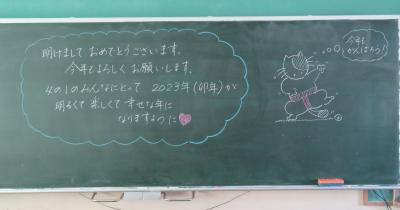 明けまして おめでとうございます。
今年もよろしく お願いします。
4の1のみんなにとって 2023年(卯年)が
明るくて 楽しくて 幸せな年に
なりますように
今年も
がんばろう!